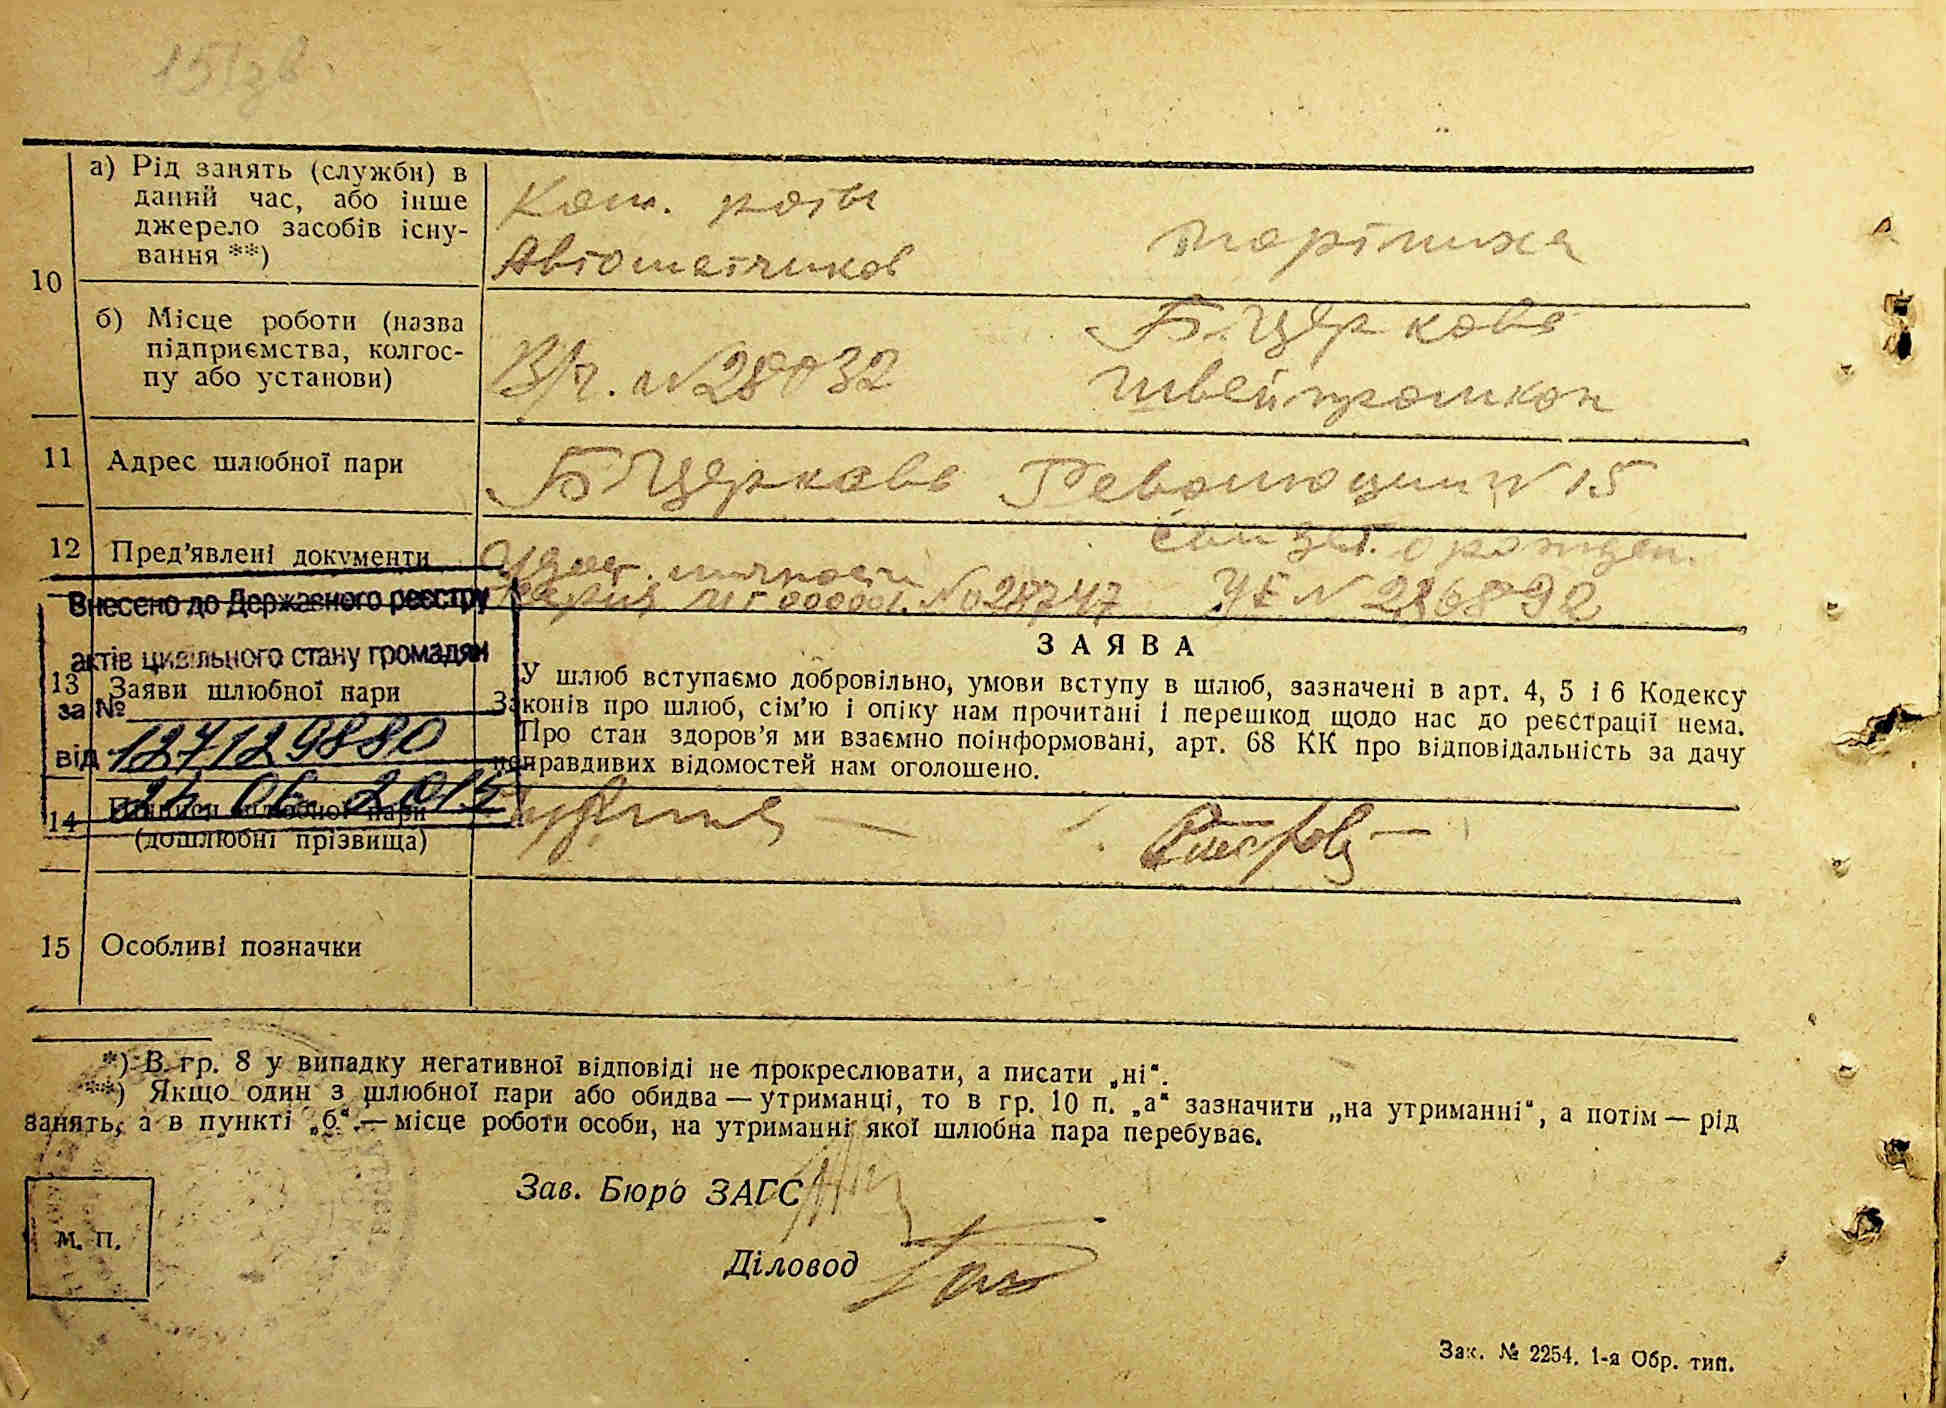 151зв.
10
а) Рід занять (служби) в
даний час, або інше
джерело засобів існу-
вання **)
Ком. роты
Автоматчиков
б) Місце роботи (назва
підприємства, колгос-
пу або установи)
В/ч. №28032
Б. Церковь
Швейпромкоп
11
Адрес шлюбної пари
Б Церковь Революции № 15
12
Пред’явлені документи
Удост. личности
№ 024747
Свидет. о рожден.
УЕ № 286892
Внесено до Державного реєстру
актів цивільного стану громадян
за №
127129880
від
2015
13
Заяви шлюбної пари
ЗАЯВА
У шлюб вступаємо добровільно, умови вступу в шлюб, зазначені в арт. 4, 5 і 6 Кодексу
Законів про шлюб, сім’ю і опіку нам прочитані і перешкод щодо нас до реєстрації нема.
Про стан здоров’я ми взаємно поінформовані, арт. 68 КК про відповідальність за дачу
неправдивих відомостей нам оголошено.
14
Підписи шлюбної пари
(дошлюбні прізвища)
15
Особливі позначки
*) В гр. 8 у випадку негативної відповіді не прокреслювати, а писати „ні“.
**) Якщо один з шлюбної пари або обидва — утриманці, то в гр. 10 п. „а“ зазначити „на утриманні“, а потім — рід
занять, а в пункті „б“ — місце роботи особи, на утриманні якої шлюбна пара перебуває.
Зав. Бюро ЗАГС
М. П.
Діловод
Зак. № 2254. 1-а Обр. тип.